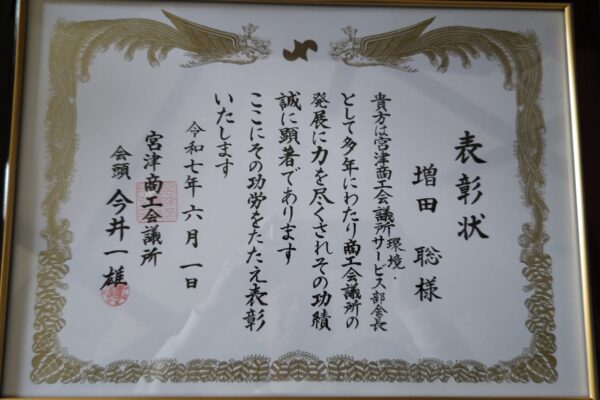 表彰状
増田 聡 様
貴方は宮津商工会議所環境・サービス部会長
として多年にわたり商工会議所の
発展に力を尽くされその功績
誠に顕著であります
ここにその功労をたたえ表彰
いたします
令和七年六月一日
宮津商工会議所
会頭 今井一雄